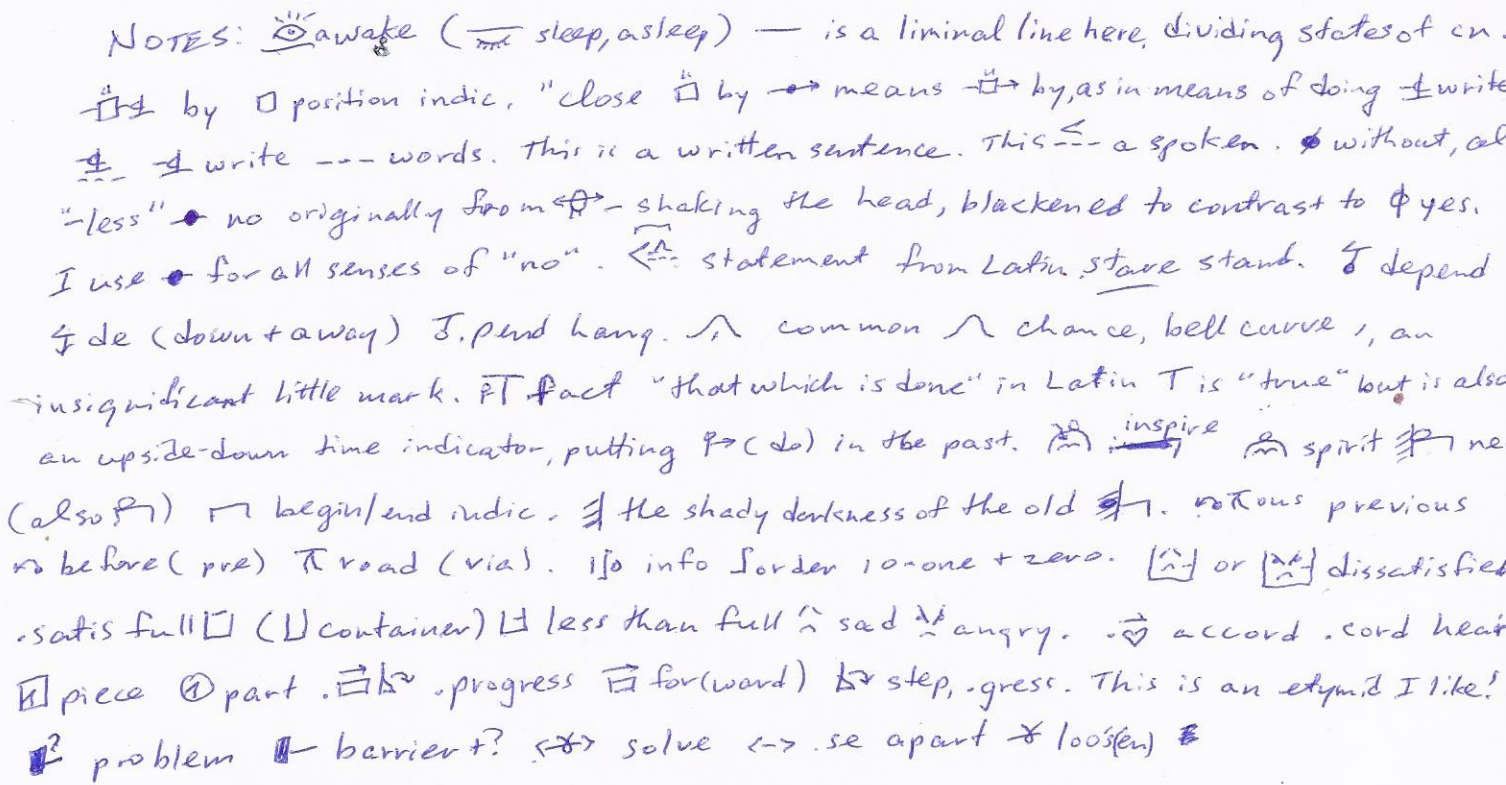 NOTES: awake ( sleep, asleep) — is a liminal line here, dividing states of cn.
by □ position indic. "close by means by, as in means of doing write
write --- words. This is a written sentence. This a spoken. without, al
"-less" no originally from - shaking the head, blackened to contrast to ϕ yes.
I use for all senses of "no". statement from Latin stare stand. depend
de (down + away) .pend hang. common chance, bell curve , an
insignificant little mark. T fact "that which is done" in Latin T is "true" but is also
an upside-down time indicator, putting (do) in the past. inspire spirit ne
(also ) begin/end indic. the shady darkness of the old . ous previous
before ( pre) π road (via). info order 10-one + zero. or dissatisfied
.satis full (⊔ container) less than full sad angry. . accord .cord hear
piece ① part . .progress for(ward) step, .gress. This is an etym.d I like!
? problem barrier + ? solve <-> .se apart loos(en)